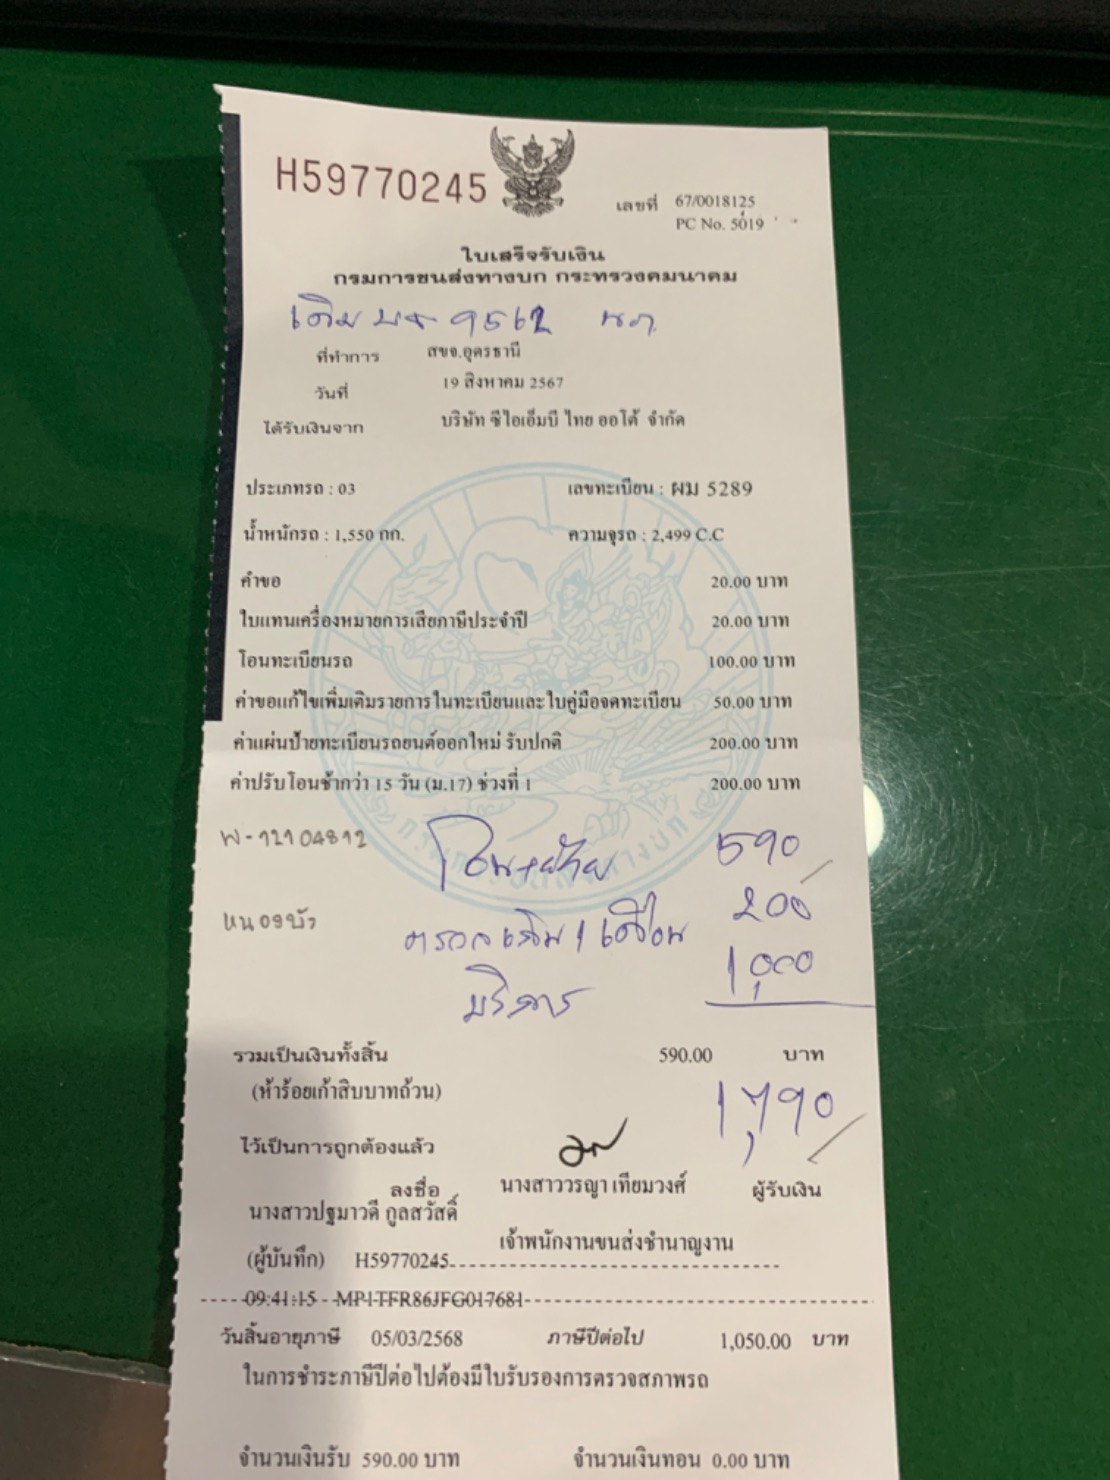 H59770245
เลขที่ 67/0018125
PC No. 5019
ใบเสร็จรับเงิน
กรมการขนส่งทางบก กระทรวงคมนาคม
เดิม 9562 นภ
ที่ทำการ สขจ.อุดรธานี
วันที่ 19 สิงหาคม 2567
ได้รับเงินจาก บริษัท ซีไอเอ็มบี ไทย ออโต้ จำกัด
ประเภทรถ : 03 เลขทะเบียน : ผม 5289
น้ำหนักรถ : 1,550 กก. ความจุรถ : 2,499 C.C
คำขอ 20.00 บาท
ใบแทนเครื่องหมายการเสียภาษีประจำปี 20.00 บาท
โอนทะเบียนรถ 100.00 บาท
ค่าขอแก้ไขเพิ่มเติมรายการในทะเบียนและใบคู่มือจดทะเบียน 50.00 บาท
ค่าแผ่นป้ายทะเบียนรถยนต์ออกใหม่ รับปกติ 200.00 บาท
ค่าปรับโอนช้ากว่า 15 วัน (ม.17) ช่วงที่ 1 200.00 บาท
พ-12104812
โอน+ย้าย 590
200
ตรวจ 1 เดือน
1,000
บริการ
รวมเป็นเงินทั้งสิ้น 590.00 บาท
(ห้าร้อยเก้าสิบบาทถ้วน)
1,790
ไว้เป็นการถูกต้องแล้ว
ลงชื่อ นางสาววรญา เทียมวงศ์ ผู้รับเงิน
นางสาวปฐมาวดี กูลสวัสดิ์
เจ้าพนักงานขนส่งชำนาญงาน
(ผู้บันทึก) H59770245
09:41:15 MP1TFR86JFG017681
วันสิ้นอายุภาษี 05/03/2568 ภาษีปีต่อไป 1,050.00 บาท
ในการชำระภาษีปีต่อไปต้องมีใบรับรองการตรวจสภาพรถ
จำนวนเงินรับ 590.00 บาท จำนวนเงินทอน 0.00 บาท